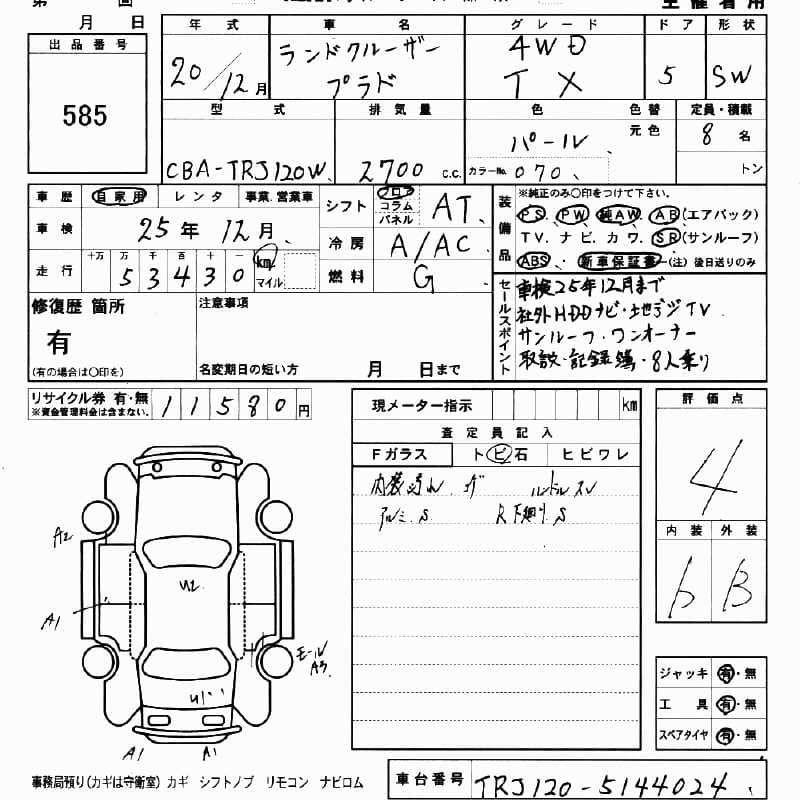 月 日
出品番号
585
年式 車名 グレード ドア 形状
20/12月 ランドクルーザー プラド 4WD TX 5 SW
型式 排気量 色 色替 定員・積載
CBA-TRJ120W 2700 C.C. パール 元色 8名
カラーNo. 070 トン
車歴 自家用 レンタ 事業.営業車
車検 25年 12月
走行 十万 万 千 百 十 一 km マイル
53430
シフト フロア コラム パネル AT
冷房 A/AC
燃料 G
装備品 ※純正のみ○印をつけて下さい。
PS PW 純AW AB(エアバック)
TV. ナビ. カワ. SR(サンルーフ)
ABS 新車保証書 (注)後日送りのみ
修復歴 箇所
有
(有の場合は○印を)
注意事項
名変期日の短い方 月 日まで
セールスポイント
車検25年12月まで
社外HDDナビ・地デジTV
サンルーフ・ワンオーナー
取説・記録簿・8人乗り
リサイクル券 有・無
※資金管理料金は含まない。
11580円
現メーター指示 km
査定員記入
Fガラス トビ石 ヒビワレ
内装 ハンドルスレ
アルミS R下廻りS
評価点
4
内装 外装
b B
A2
U2
A1
モール
A3
U1
A1 A1
ジャッキ 有・無
工具 有・無
スペアタイヤ 有・無
事務局預り(カギは守衛室) カギ シフトノブ リモコン ナビロム
車台番号 TRJ120-5144024